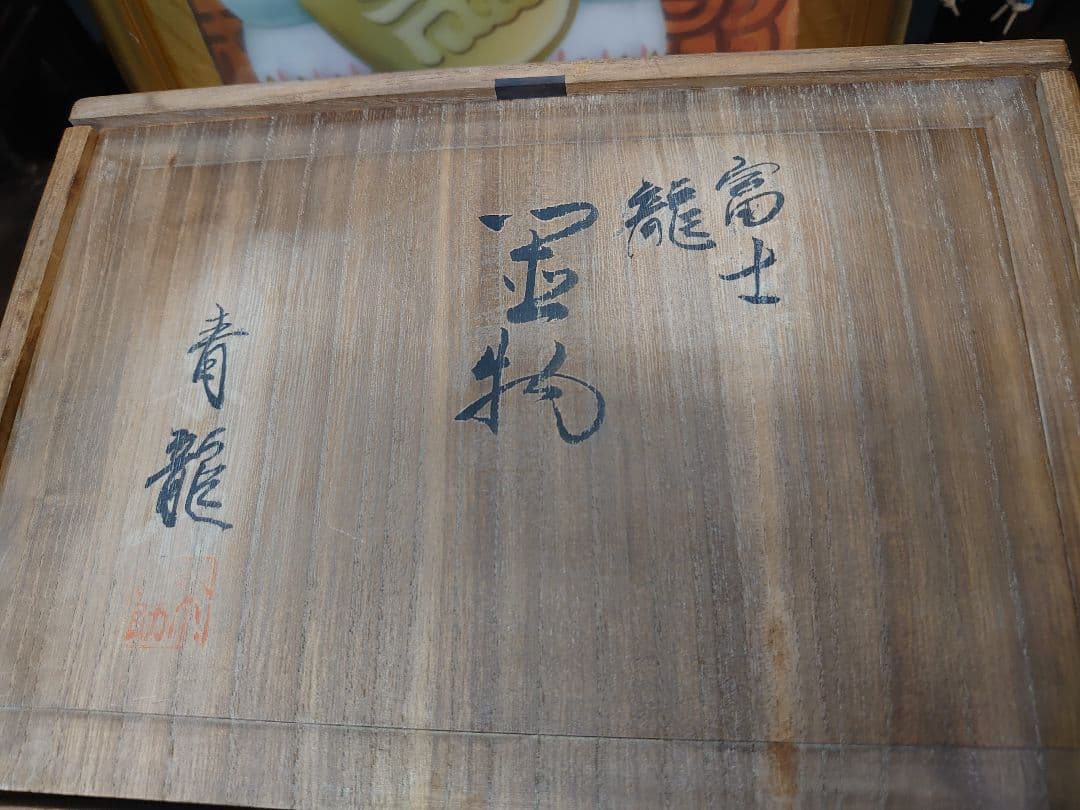 富士
龍
置物
青龍